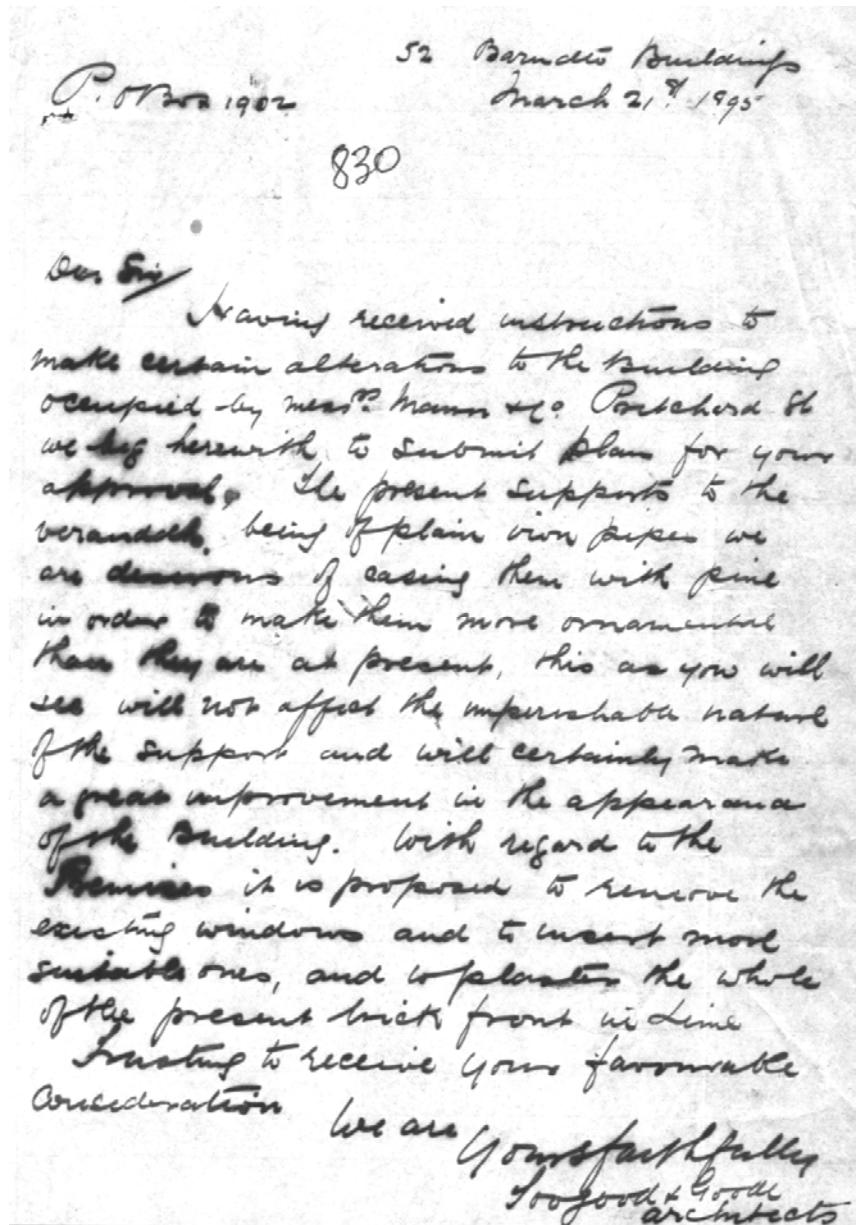 52 Barndto Buildings
P.O Box 1902 March 21st 1895
830
Dear Sir/
Having received instructions to
make certain alterations to the Building
occupied by Messrs. Mann & Co. Pritchard St
we beg herewith to submit plan for your
approval. The present supports to the
verandah, being of plain iron pipes we
are desirous of casing them with pine
in order to make them more ornamental
than they are at present, this as you will
see will not affect the imperishable nature
of the support and will certainly make
a great improvement in the appearance
of the Building. With regard to the
Premises it is proposed to remove the
existing windows and to insert more
suitable ones, and to plaster the whole
of the present brick front in Lime
Trusting to receive your favourable
consideration
We are
Yours faithfully
Toogood & Goode
architects